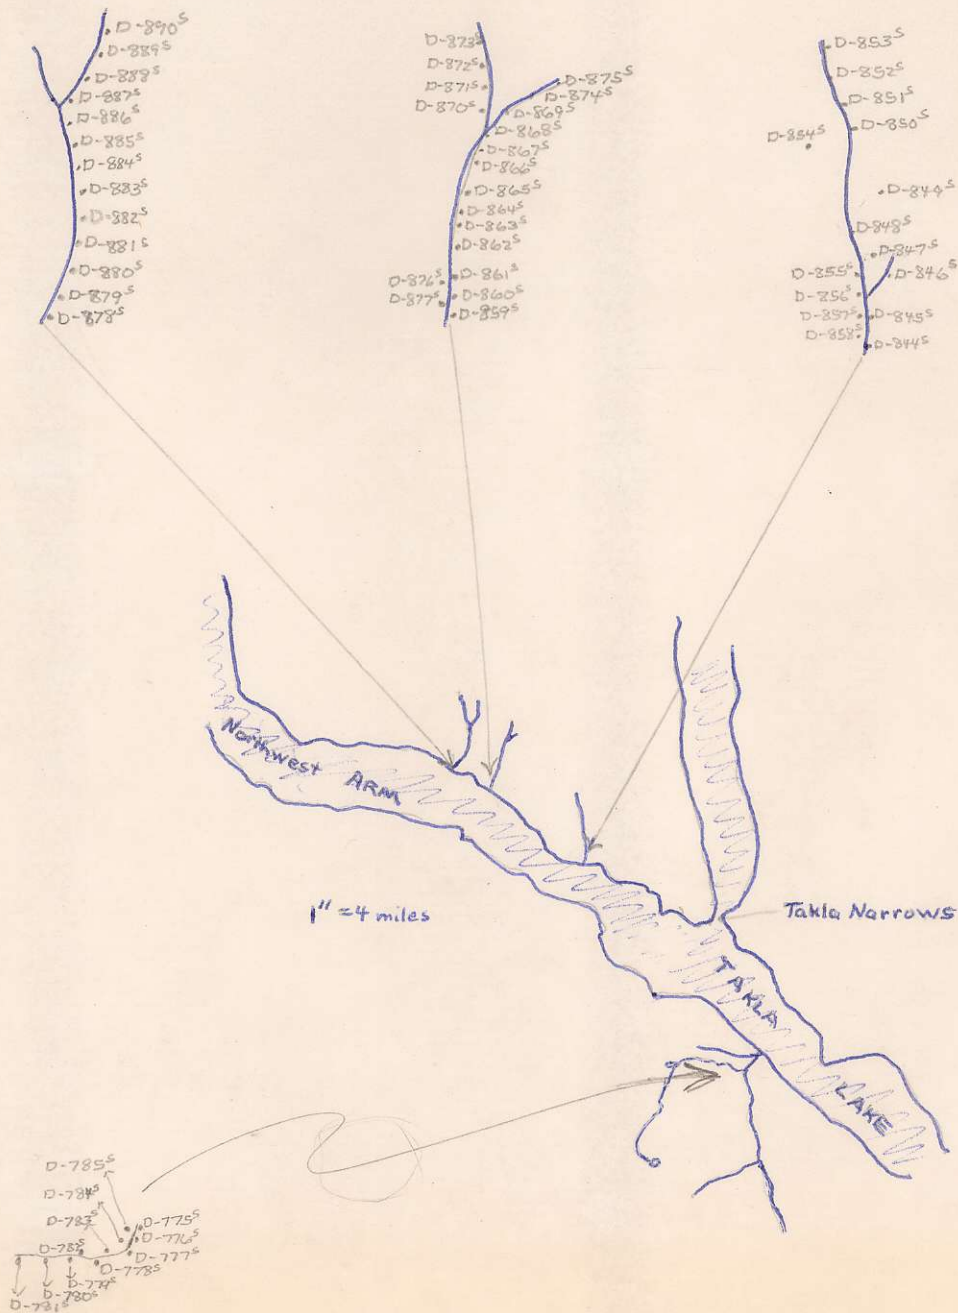 D-890ˢ
D-889ˢ
D-888ˢ
D-887ˢ
D-886ˢ
D-885ˢ
D-884ˢ
D-883ˢ
D-882ˢ
D-881ˢ
D-880ˢ
D-879ˢ
D-878ˢ
D-873ˢ
D-872ˢ
D-871ˢ
D-870ˢ
D-875ˢ
D-874ˢ
D-869ˢ
D-868ˢ
D-867ˢ
D-866ˢ
D-865ˢ
D-864ˢ
D-863ˢ
D-862ˢ
D-876ˢ
D-861ˢ
D-877ˢ
D-860ˢ
D-859ˢ
D-853ˢ
D-852ˢ
D-851ˢ
D-850ˢ
D-854ˢ
D-849ˢ
D-848ˢ
D-847ˢ
D-855ˢ
D-846ˢ
D-856ˢ
D-857ˢ
D-845ˢ
D-858ˢ
D-844ˢ
Northwest ARM
1" = 4 miles
Takla Narrows
TAKLA
LAKE
D-785ˢ
D-784ˢ
D-783ˢ
D-775ˢ
D-776ˢ
D-782ˢ
D-777ˢ
D-778ˢ
D-779ˢ
D-780ˢ
D-781ˢ